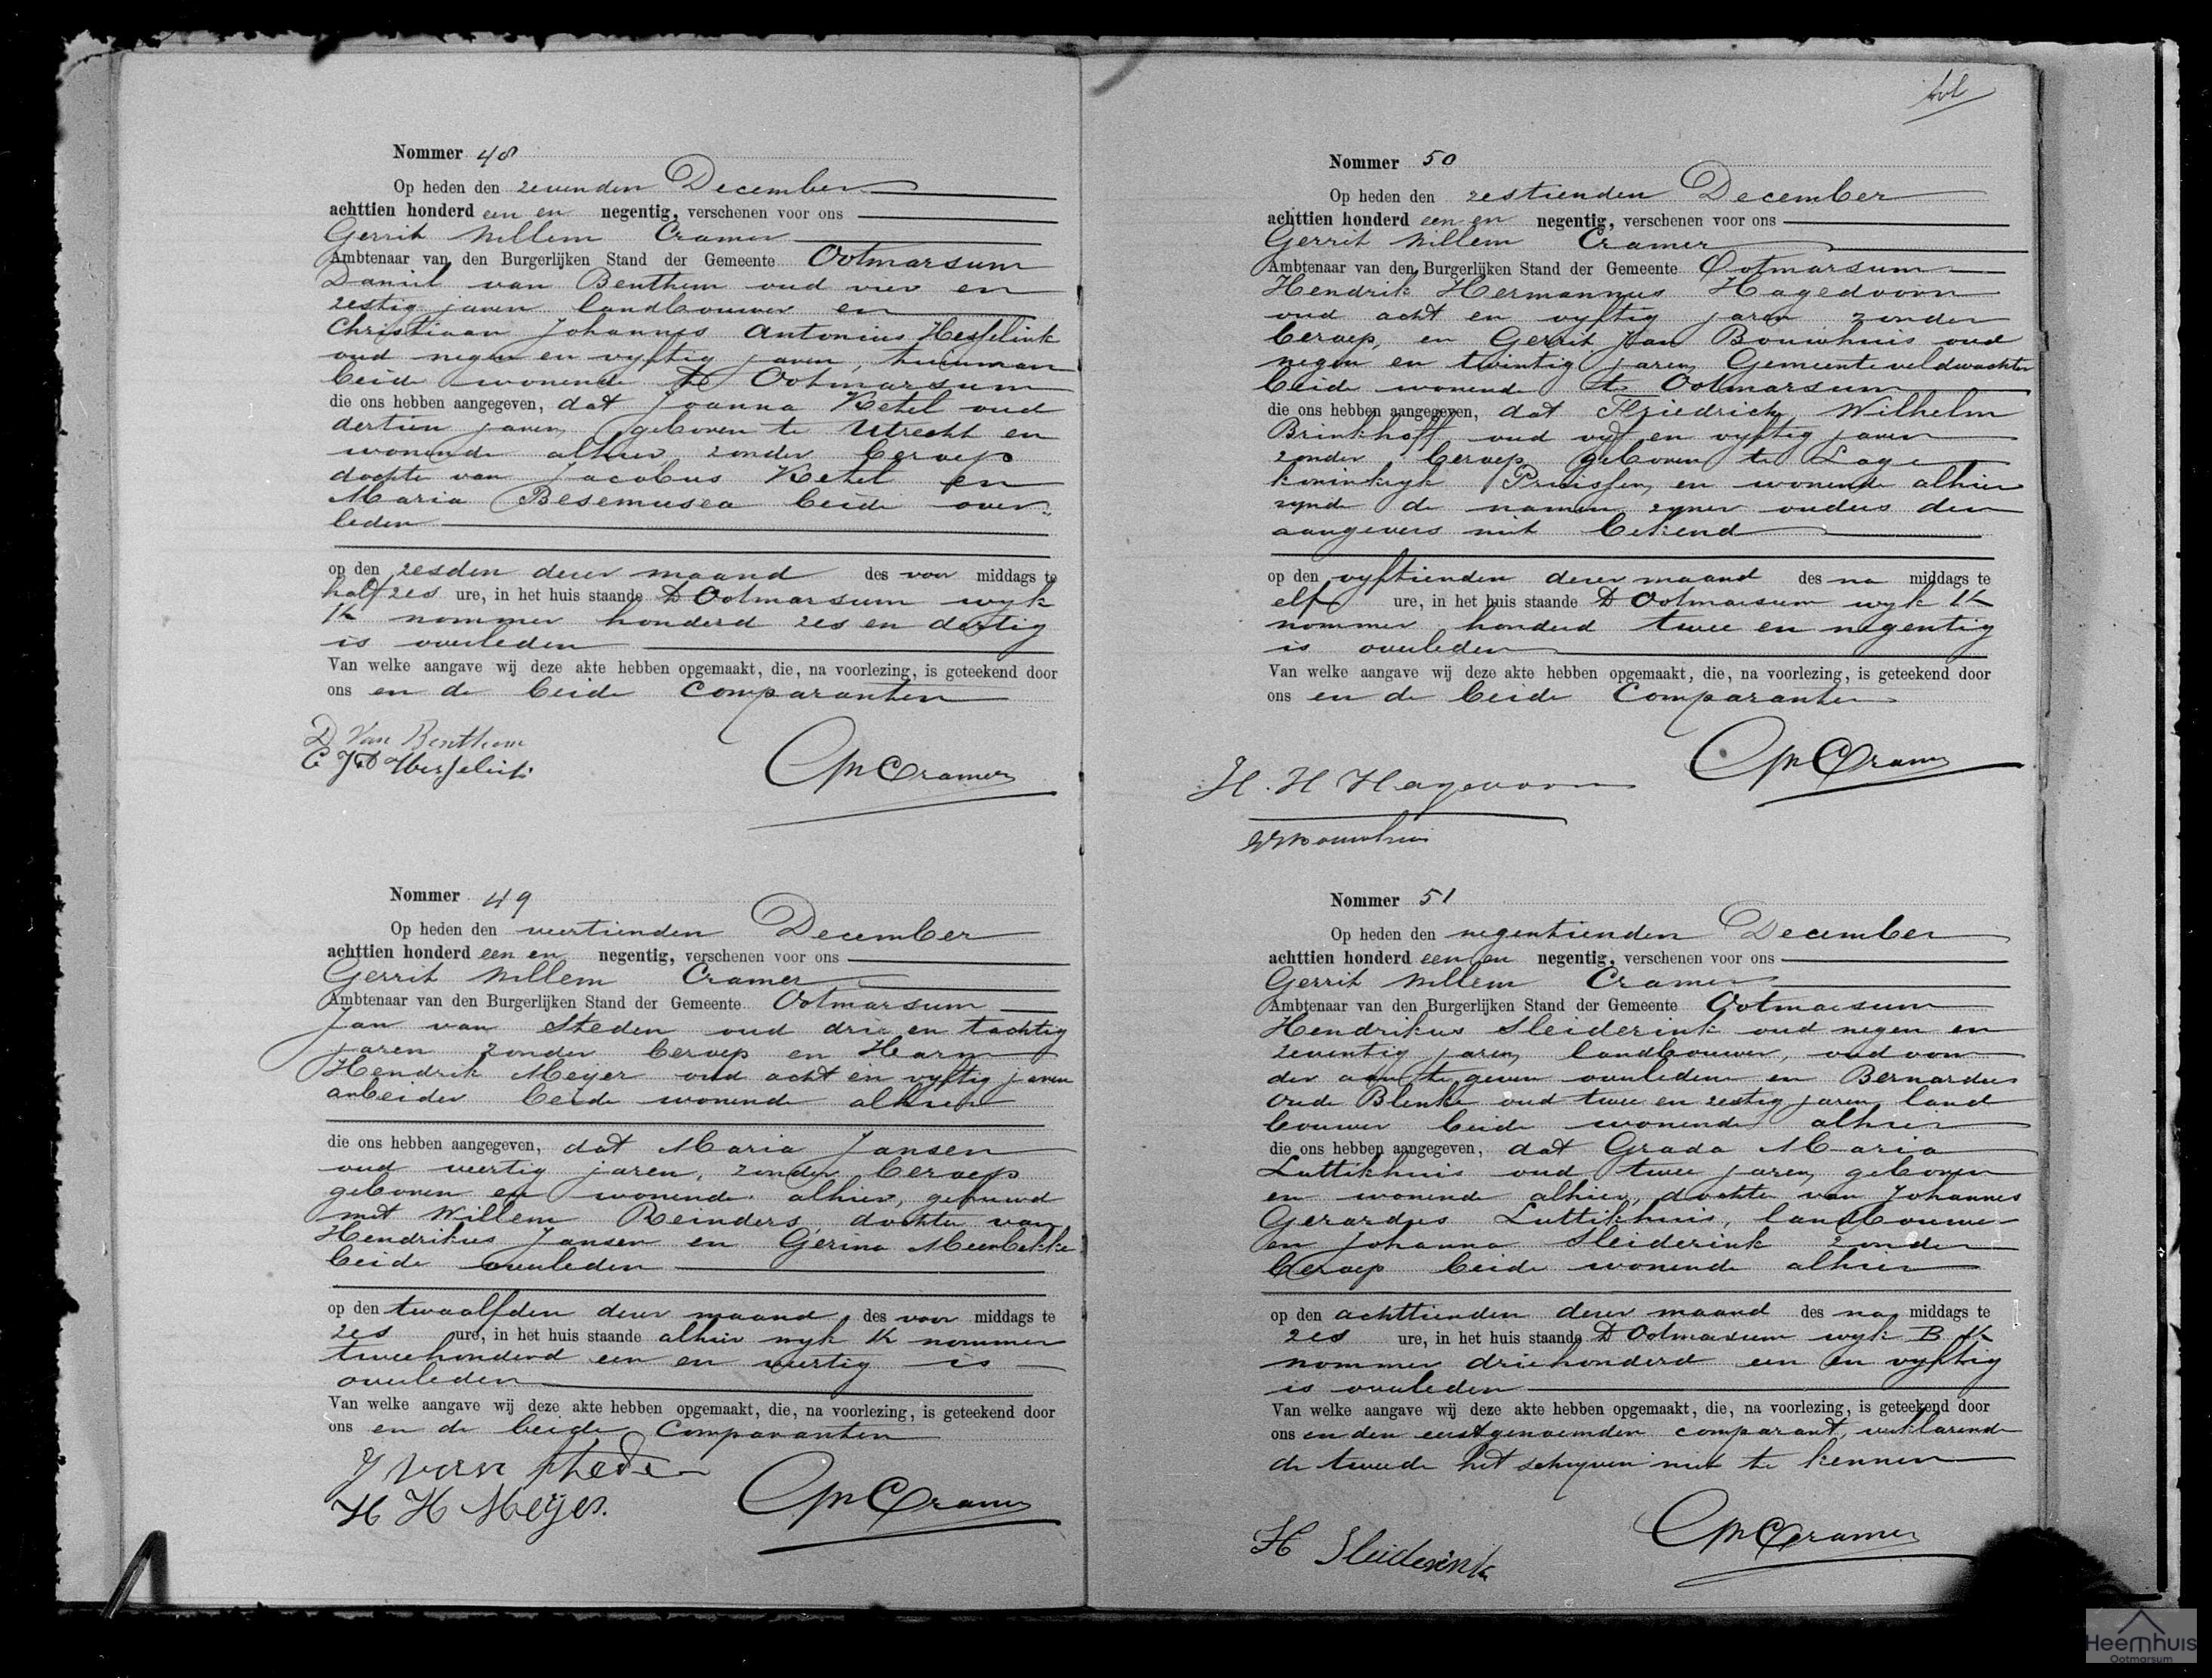 Nommer 48
Op heden den zevenden December
achttien honderd een en negentig, verschenen voor ons
Gerrit Willem Cramer
Ambtenaar van den Burgerlijken Stand der Gemeente Ootmarsum
Daniel van Benthem oud vier en
zestig jaren landbouwer en
Christiaan Johannes Antonius Hesselink
oud negen en vyftig jaren, tuinman
beide wonende te Ootmarsum
die ons hebben aangegeven, dat Joanna Ketel oud
dertien jaren, geboren te Utrecht en
wonende alhier zonder beroep
dochter van Jacobus Ketel en
Maria Besemusea beide over-
leden
op den zesden dezer maand des voor middags te
half zes ure, in het huis staande te Ootmarsum wyk
K nommer honderd zes en dertig
is overleden
Van welke aangave wij deze akte hebben opgemaakt, die, na voorlezing, is geteekend door
ons en de beide Comparanten
D Van Benthem
GWCramer
Nommer 49
Op heden den veertienden December
achttien honderd een en negentig, verschenen voor ons
Gerrit Willem Cramer
Ambtenaar van den Burgerlijken Stand der Gemeente Ootmarsum
Jan van Steden oud drie en tachtig
jaren zonder beroep en Harm
Hendrik Meyer oud acht en vyftig jaren
arbeider beide wonende alhier
die ons hebben aangegeven, dat Maria Jansen
oud veertig jaren, zonder beroep
geboren en wonende alhier, gehuwd
met Willem Reinders, dochter van
Hendrikus Jansen en Gerina Meenbekke
beide overleden
op den twaalfden dezer maand des voor middags te
zes ure, in het huis staande alhier wyk K nommer
tweehonderd een en veertig is
overleden
Van welke aangave wij deze akte hebben opgemaakt, die, na voorlezing, is geteekend door
ons en de beide Comparanten
J van Steden
H H Meÿer.
GWCramer
Nommer 50
Op heden den zestienden December
achttien honderd een en negentig, verschenen voor ons
Gerrit Willem Cramer
Ambtenaar van den Burgerlijken Stand der Gemeente Ootmarsum
Hendrik Hermannus Hagedoorn
oud acht en vyftig jaren zonder
beroep, en Gerrit Jan Bouwhuis oud
negen en twintig jaren, Gemeenteveldwachter
beide wonende te Ootmarsum
die ons hebben aangegeven, dat Friedrich Wilhelm
Brinkhoff oud vyf en vyftig jaren
zonder beroep geboren te Lage
koninkryk Pruissen, en wonende alhier
zynde de namen zyner ouders den
aangevers niet bekend
op den vyftienden dezer maand des na middags te
elf ure, in het huis staande te Ootmarsum wyk K
nommer honderd twee en negentig
is overleden
Van welke aangave wij deze akte hebben opgemaakt, die, na voorlezing, is geteekend door
ons en de beide Comparanten
GWCramer
H. H Hagedoorn
GJBouwhuis
Nommer 51
Op heden den negentienden December
achttien honderd een en negentig, verschenen voor ons
Gerrit Willem Cramer
Ambtenaar van den Burgerlijken Stand der Gemeente Ootmarsum
Hendrikus Sleiderink oud negen en
zeventig jaren, landbouwer, oudoom
der aan te geven overledene en Bernardus
oude Blenke oud twee en zestig jaren, land
bouwer beide wonende alhier
die ons hebben aangegeven, dat Grada Maria
Luttikhuis oud twee jaren, geboren
en wonende alhier, dochter van Johannes
Gerardus Luttikhuis, landbouwer
en Johanna Sleiderink zonder
beroep beide wonende alhier
op den achttienden dezer maand des na middags te
zes ure, in het huis staande te Ootmarsum wyk B K
nommer driehonderd een en vyftig
is overleden
Van welke aangave wij deze akte hebben opgemaakt, die, na voorlezing, is geteekend door
ons en den eerstgenoemden comparant, verklarende
de tweede het schryven niet te kennen
GWCramer
H Sleiderink
Heemhuis
Ootmarsum